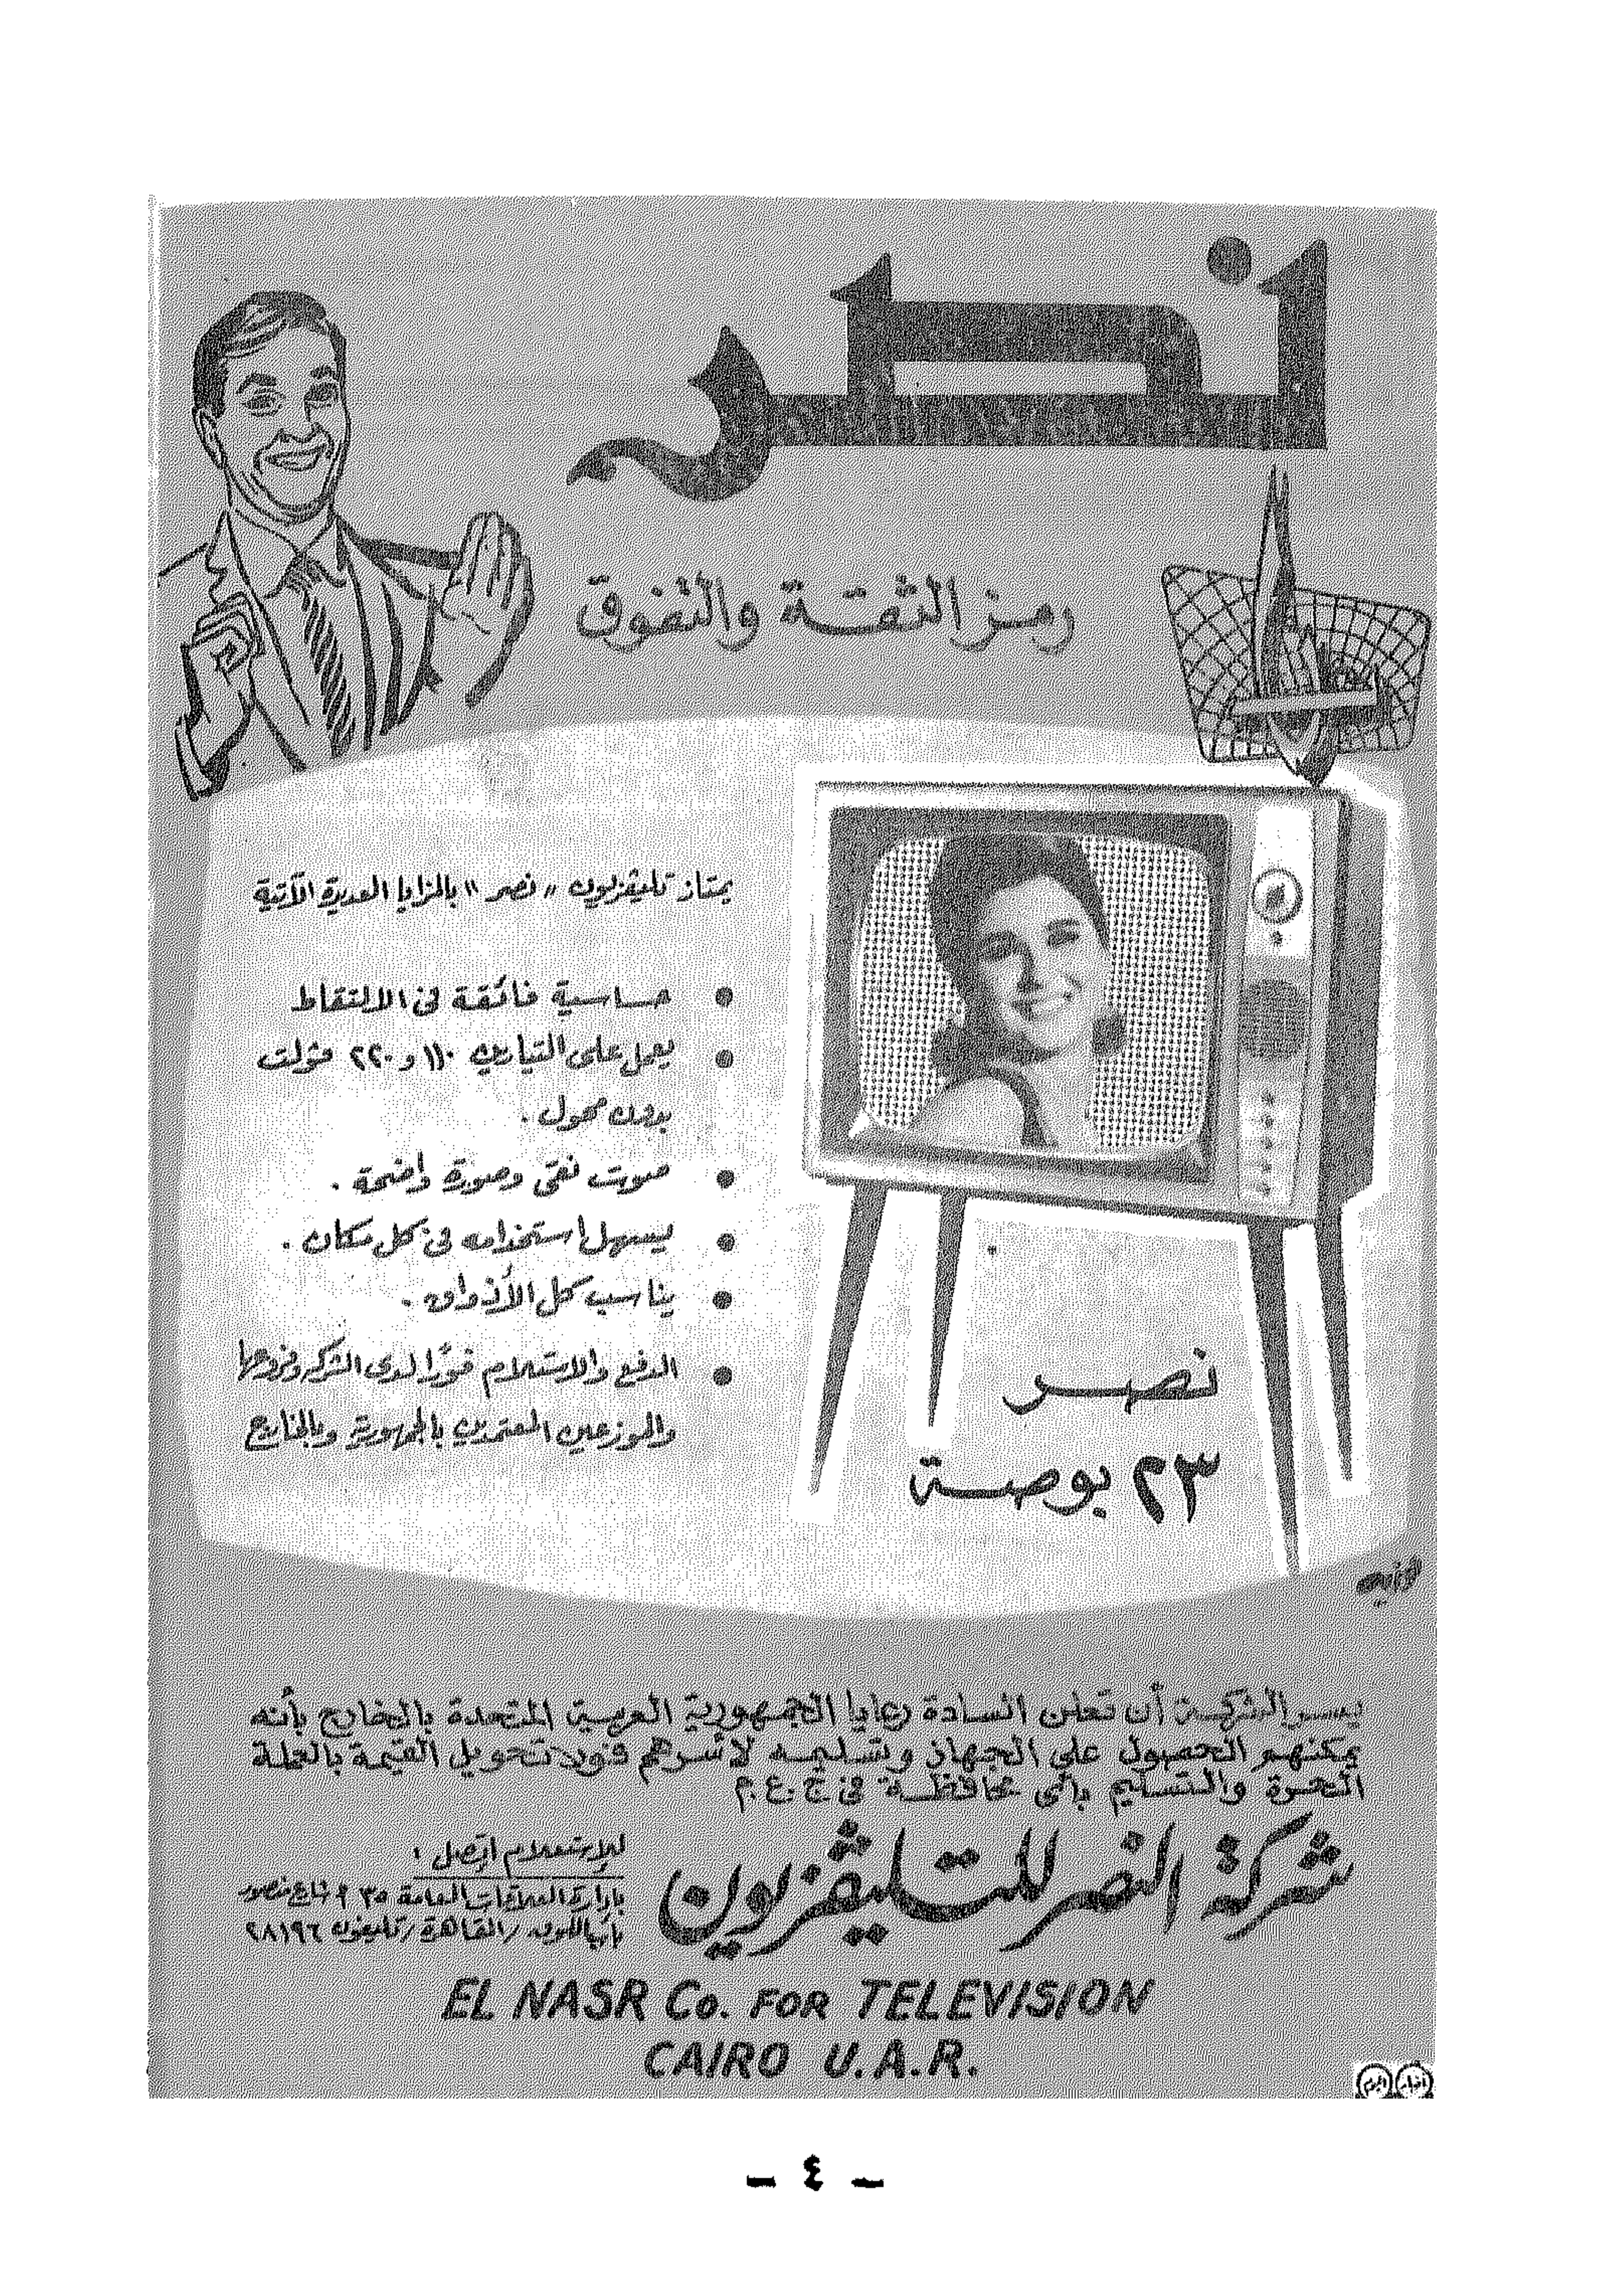 نصر
رمز الثقة والتفوق
يمتاز تليفزيون "نصر" بالمزايا العديدة الآتية
• حساسية فائقة فى الالتقاط
• يعمل على التيارين ١١٠ و ٢٢٠ ڤولت
بدون محول .
• صوت نقى وصورة واضحة .
• يسهل استخدامه فى كل مكان .
• يناسب كل الأذواق .
• الدفع والاستلام فورًا لدى الشركة وفروعها
والموزعين المعتمدين بالجمهورية وبالخارج
نصر
٢٣ بوصة
يسر الشركة أن تعلن السادة رعايا الجمهورية العربية المتحدة بالخارج بأنه
يمكنهم الحصول على الجهاز وتسليمه لأسرهم فور تحويل القيمة بالعملة
الحرة والتسليم بأى محافظة فى ج.ع.م
شركة النصر للتليڤزيون
للإستعلام اتصل :
بإدارة العلاقات العامة ٣٥ شارع منصور
بباب اللوق / القاهرة / تليفون ٢٨١٩٦
EL NASR Co. FOR TELEVISION
CAIRO U.A.R.
أخبار اليوم
- ٤ -